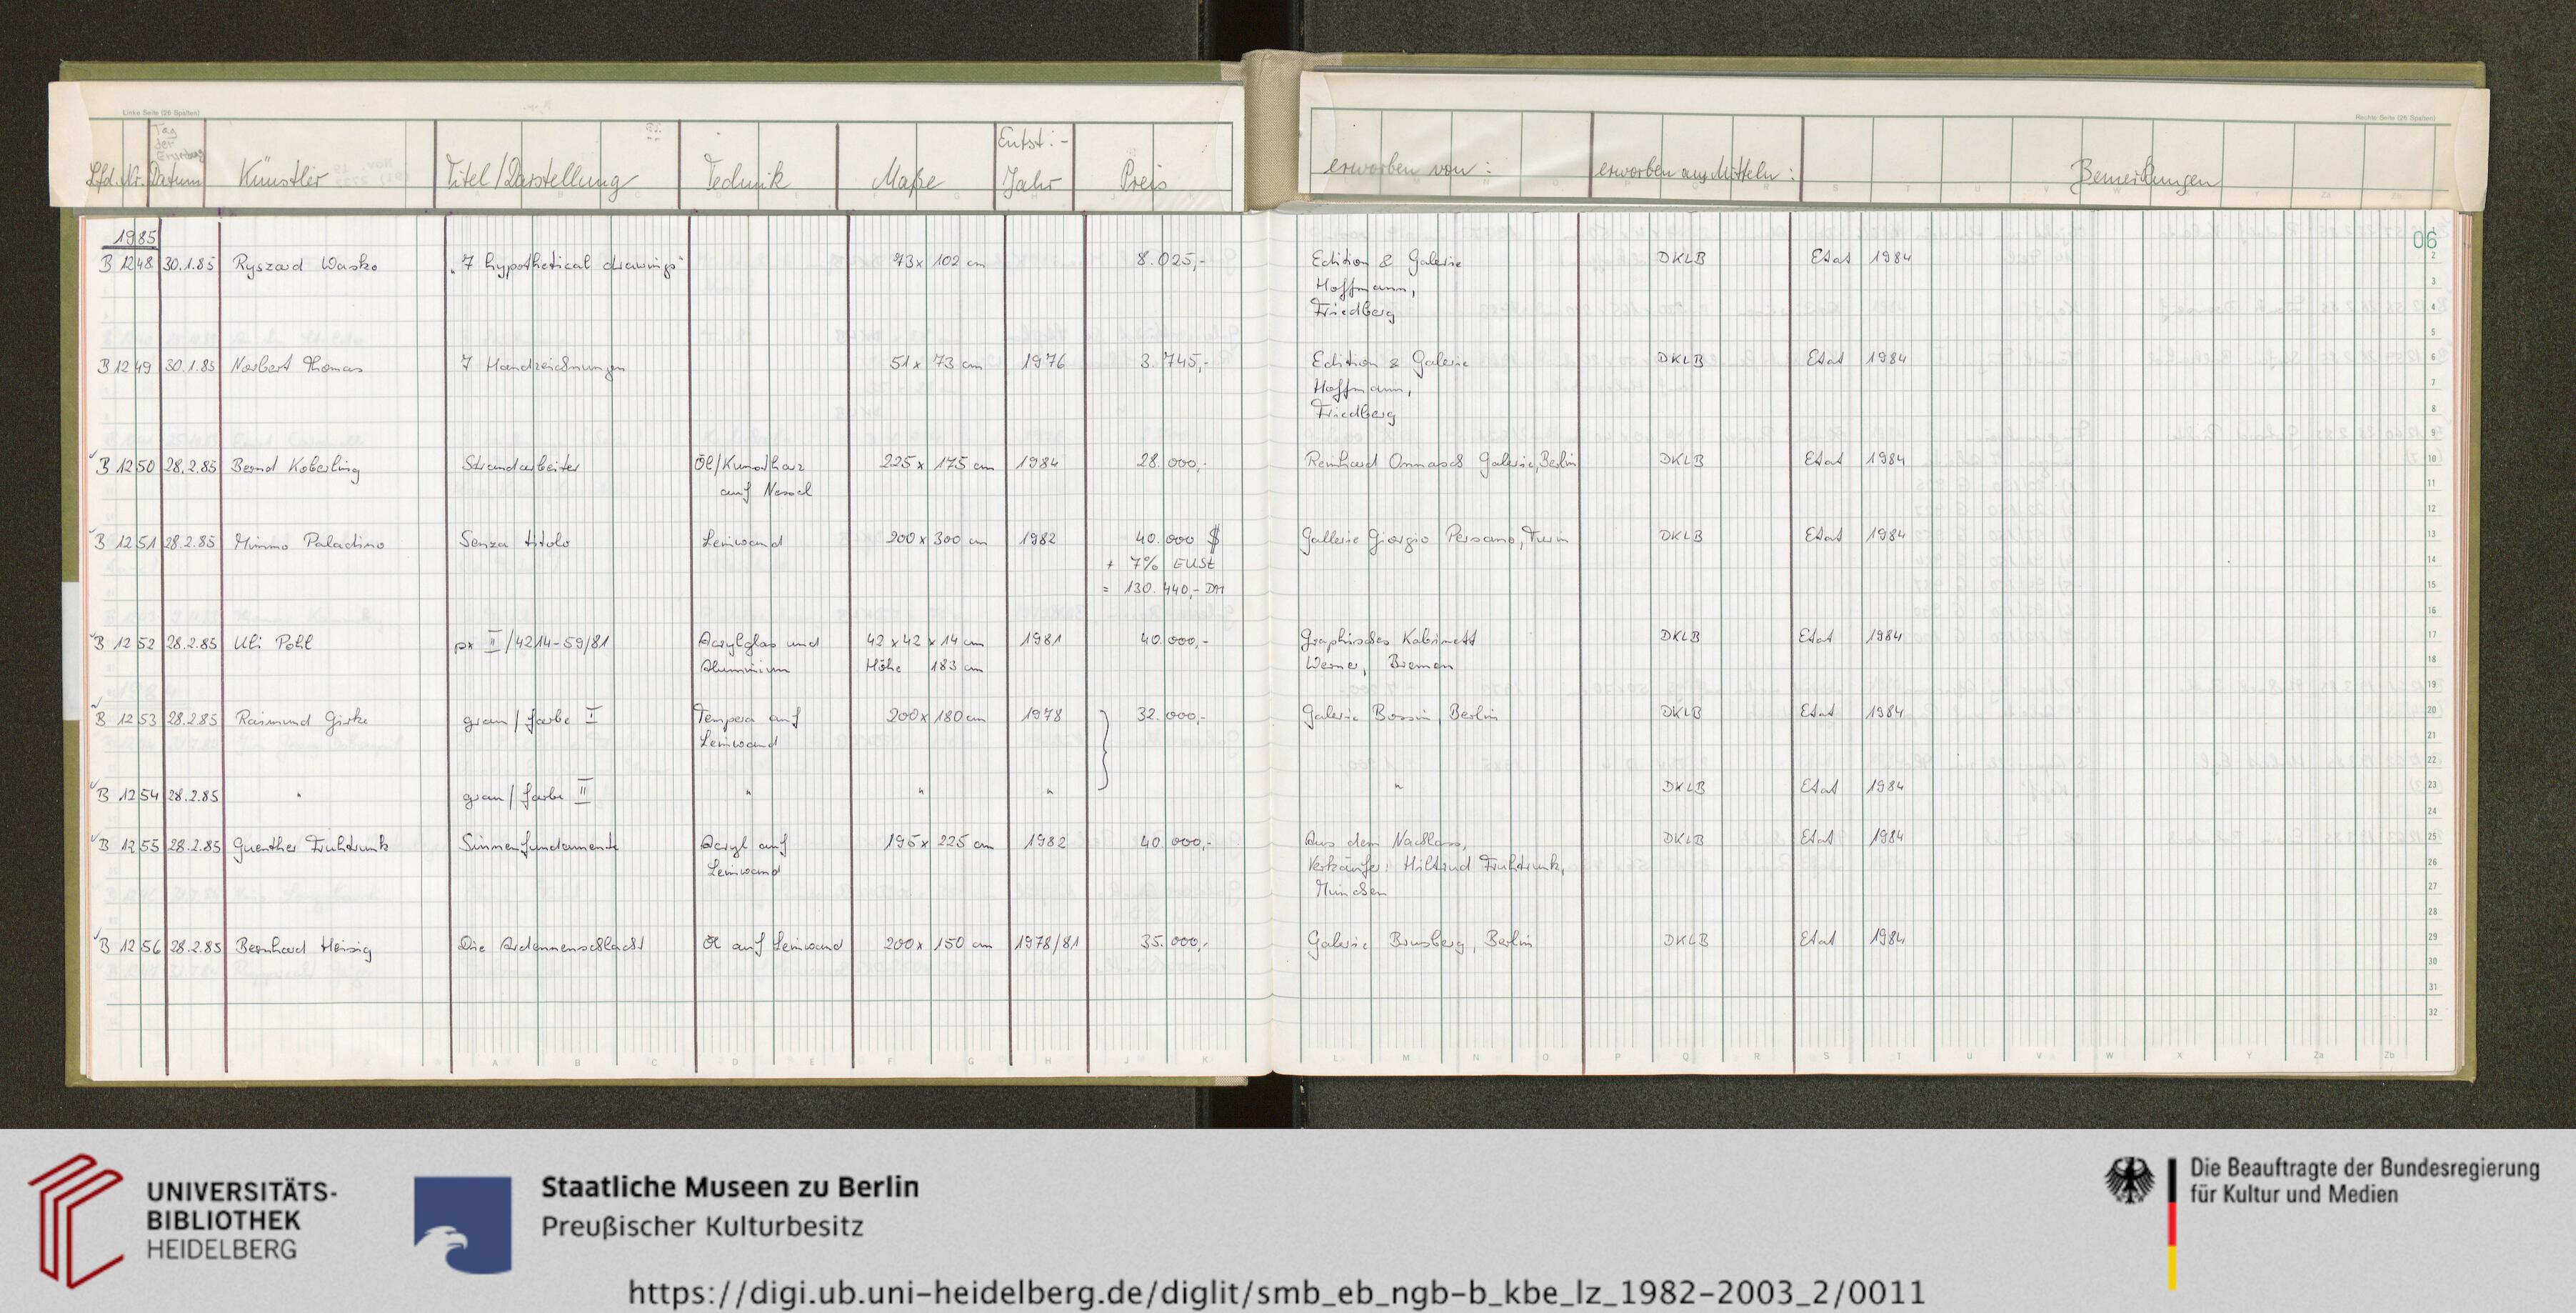 Linke Seite (26 Spalten)
Rechte Seite (26 Spalten)
Lfd. Nr. Tag der Erwerbung Datum Künstler Titel/Darstellung Technik Maße Entst.:- Jahr Preis erworben von: erworben aus Mitteln: Bemerkungen
06
1985
B 1248 30.1.85 Ryszard Wasko "7 hypothetical drawings" 73 x 102 cm 8.025,- Edition & Galerie DKLB Etat 1984
Hoffmann,
Friedberg
B 1249 30.1.85 Norbert Thomas 7 Handzeichnungen 51 x 73 cm 1976 3.745,- Edition & Galerie DKLB Etat 1984
Hoffmann,
Friedberg
B 1250 28.2.85 Bernd Koberling Strandarbeiter Öl/Kunstharz 225 x 175 cm 1984 28.000,- Reinhard Onnasch Galerie, Berlin DKLB Etat 1984
auf Nessel
B 1251 28.2.85 Mimmo Paladino Senza titolo Leinwand 200 x 300 cm 1982 40.000 $ Gallerie Giorgio Persano, Turin DKLB Etat 1984
+ 7% EUSt
= 130.440,- DM
B 1252 28.2.85 Uli Pohl px II/4214-59/81 Acrylglas und 42 x 42 x 14 cm 1981 40.000,- Graphisches Kabinett DKLB Etat 1984
Aluminium Höhe 183 cm Werner, Bremen
B 1253 28.2.85 Raimund Girke grau/farbe I Tempera auf 200 x 180 cm 1978 32.000,- Galerie Bossin, Berlin DKLB Etat 1984
Leinwand
B 1254 28.2.85 " grau/farbe II " " " " DKLB Etat 1984
B 1255 28.2.85 Guenther Fruhtrunk Sinnenfundamente Acryl auf 195 x 225 cm 1982 40.000,- Aus dem Nachlass, DKLB Etat 1984
Leinwand Verkäufer: Hiltrud Fruhtrunk,
München
B 1256 28.2.85 Bernhard Heisig Die Ardennenschlacht Öl auf Leinwand 200 x 150 cm 1978/81 35.000,- Galerie Brusberg, Berlin DKLB Etat 1984
1
2
3
4
5
6
7
8
9
10
11
12
13
14
15
16
17
18
19
20
21
22
23
24
25
26
27
28
29
30
31
32
A B C D E F G H J K L M N O P Q R S T U V W X Y Za Zb
UNIVERSITÄTS-
BIBLIOTHEK
HEIDELBERG
Staatliche Museen zu Berlin
Preußischer Kulturbesitz
Die Beauftragte der Bundesregierung
für Kultur und Medien
https://digi.ub.uni-heidelberg.de/diglit/smb_eb_ngb-b_kbe_lz_1982-2003_2/0011